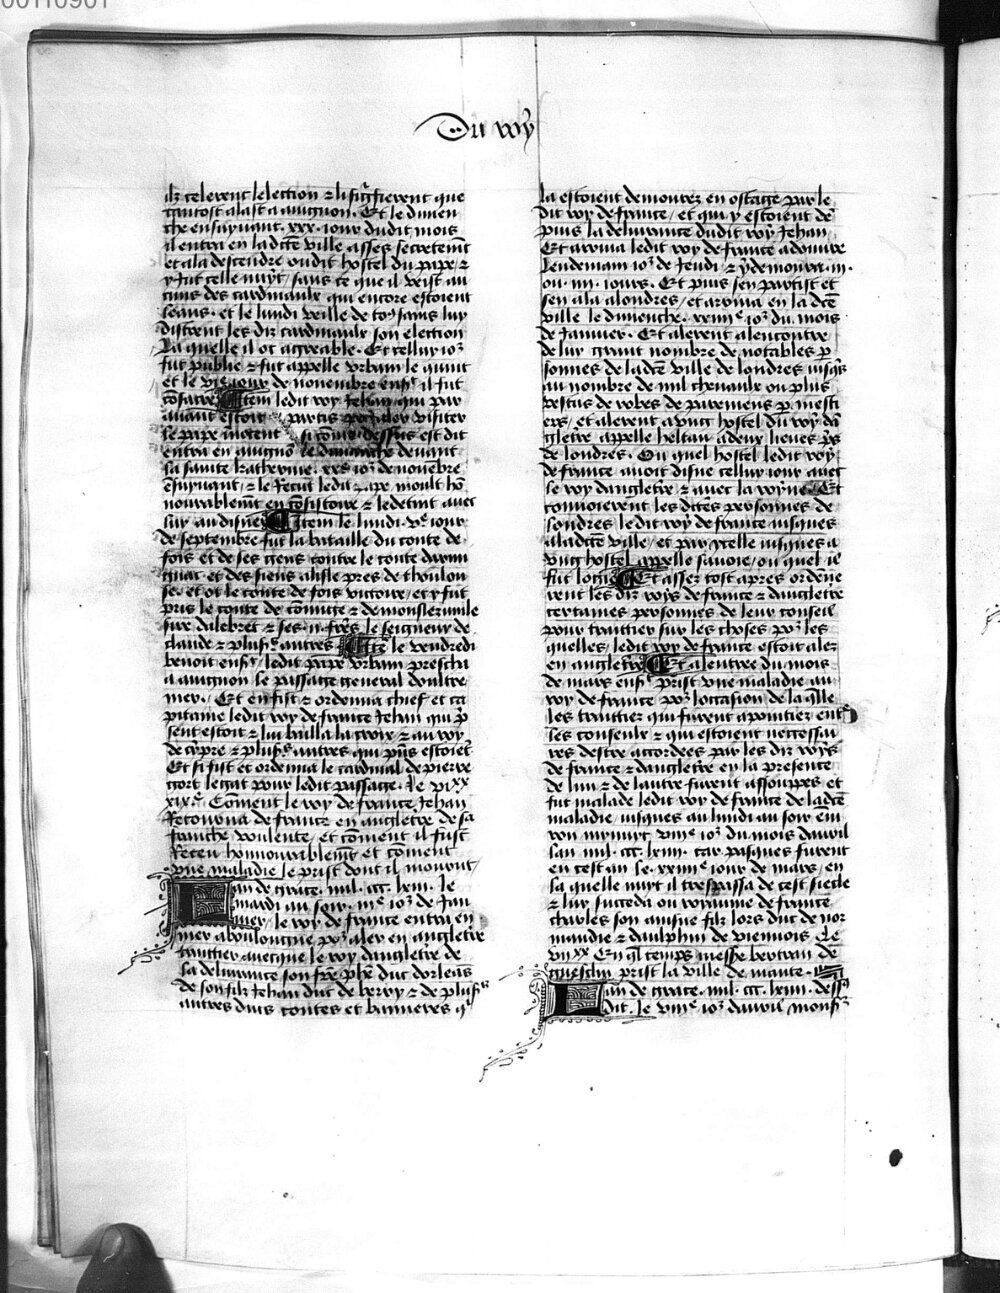 Du roy
ilz celerent lelection ⁊ li signifierent que
tantost alast a auignon. Et le dimen
che ensuyuant .xxx. iour dudit mois
il entra en ladicte ville asses secretemt
et ala descendre oudit hostel du pape ⁊
y fut celle nuyt / sans ce que il veist au
cuns des cardinaulx qui encore estoient
leans. et le lundi veille de toꝰ sains luy
distrent les diz cardinaulx son election
La quelle il ot agreable. Et celluy ior
fut publie ⁊ fut appelle vrbain le quint
et le vi.e iour de nouembre ensꝰ il fut
cōsacre Item ledit roy Jehan qui par
auant estoit partis pour aler visiter
le pape si cōme dessus est dit
entra en auignō le dimanche deuant
la sainte katherine. xx.e ior de nouēbre
ēsuyuant / ⁊ le Receut ledit pape moult hō
nourablemt en cōsistoire ⁊ le detint auec
luy au disner Item le lundi .v.e iour
de septembre fut la bataille du conte de
fois et de ses gens contre le conte darmi
gnac et des siens a lisle pres de thoulou
se. et ot le conte de fois victoire / et y fut
pris le conte de cōminge ⁊ de monslerun le
sire dalebret ⁊ ses .ii. frēs le seigneur de
claude ⁊ plusꝰ autres Itē le vendredi
benoit ensꝰ ledit pape vrbain prescha
a auignon le passage general doultre
mer. Et en fist ⁊ ordenna chief et ca
pitaine ledit roy de france Jehan qui p̄
sent estoit ⁊ lui bailla la croix ⁊ au roy
de cypre ⁊ plusꝰ autres qui p̄ns estoiēt
Et si fist et ordenna le cardinal de pierre
gort legat pour ledit passage. Le pixx
xix.e Cōment le roy de france Jehan
Retourna de france en angletre de sa
franche voulente, et cōment il fust
Receu honnourablemt et cōment
vne maladie le prist dont il mourut /
Lan de grace. mil. ccc. lxiii. le
mardi au soir. iii.e ior de Jan
uier, le roy de france entra en
mer a boulongne por aler en angletre
traittier auecque le roy dangletre de
la deliurance son frē phē duc dorleās
de son filz Jehan duc de berry ⁊ de plusꝰ
autres duis contes et bannieres q̄
la estoient demourez en ostage par le
dit roy de france / et qui y estoient de
puis la deliurance dudit roy Jehan.
Et ariua ledit roy de france a douure
lendemain ior de Jeudi ⁊ y demoura .iii.
ou .iiii. iours. Et puis sen partist et
sen ala a londres / et ariua en la dcē
ville le dimenche. xxiiii.e ior du. mois
de Januier. Et alerent a lencontre
de luy grant nombre de notables p̄
sonnes de la dcē ville de londres iusq̄s
au nombre de mil cheuaulx ou plus
vestus de robes de paremens p. mesti
ers / et alerent a vng hostel du roy dā
gletre appelle heltan a deux lieues p̄s
de londres. Ou quel hostel ledit roy
de france auoit disne celluy iour auec
le roy dangletre ⁊ auec la royne. Et
conuoierent les dictes personnes de
londres ledit roy de france iusques
a ladicte ville / et par ycelle iusques a
vng hostel appelle sauoie / ou quel il
fut logie Et assez tost apres ordene
rent les diz roys de france ⁊ dangletre
certaines personnes de leur conseil
pour traittier sur les choses por les
quelles / ledit roy de france estoit alez
en angletre Et a lentree du mois
de mars ensꝰ prist vne maladie au
roy de france por loccasion de la q̄lle
les traittier qui furent apointiez entr
les conseulx ⁊ qui estoient necessai
res destre accordees par les diz roys
de france ⁊ dangletre en la presence
de lun ⁊ de lautre furent assouppes et
fut malade ledit roy de france de la dcē
maladie / iusques au lundi au soir ēui
ron mynuyt. viii.e ior du mois dauril
lan mil. ccc. lxiiii. car pasques furent
en cest an le. xxiiii.e iour de mars / en
la quelle nuyt il trespassa de cest siecle
⁊ luy succeda ou royaume de france
charles son ainsne filz lors duc de nor
mandie ⁊ daulphin de viennois Le
viixx En q̄l temps messire bertran de
guesclin prist la ville de mante.
Lan de grace. mil. ccc. lxiiii. dessꝰ
dit. le viii.e ior dauril monsr